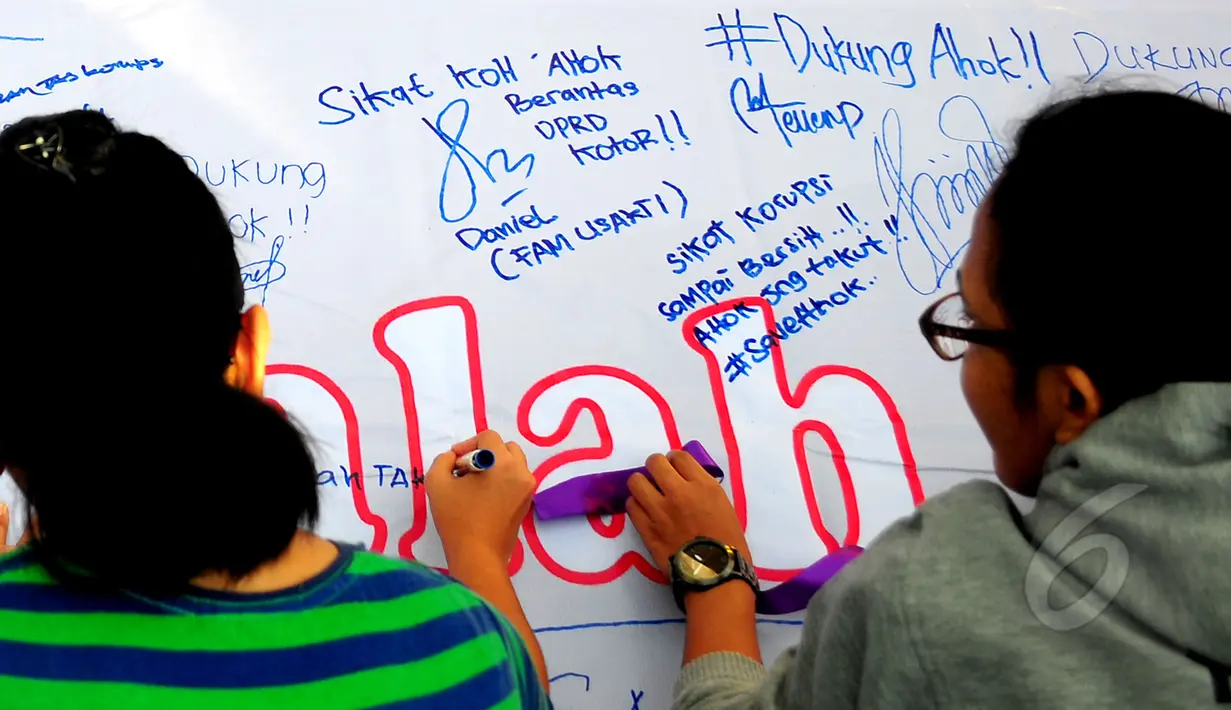 korups
Sikat KoH AHOK
Berantas
DPRD
KotoR!!
Daniel
(FAM USAKTI)
#Dukung Ahok!!
DUKUNG
Dukung
ok!!
Sikat Korupsi
Sampai Bersih..!!
AHok jng takut!!
#SaveAhok..
ah TAK
lah
6